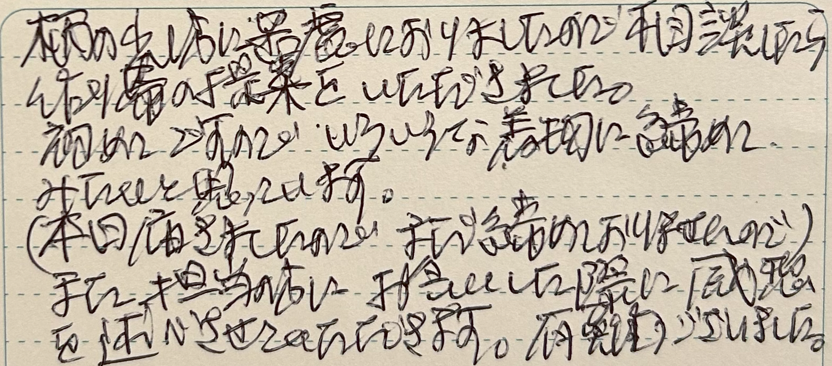 柄の出し方に苦慮しておりましたので相談したら
作り帯の提案をいただきました。
初めてですので いろいろな着物に締めて
みたいと思っています。
(本日届きましたので まだ締めておりませんので)
また、担当の方にお会いした際に感想
を述べさせていただきます。有難うございました。